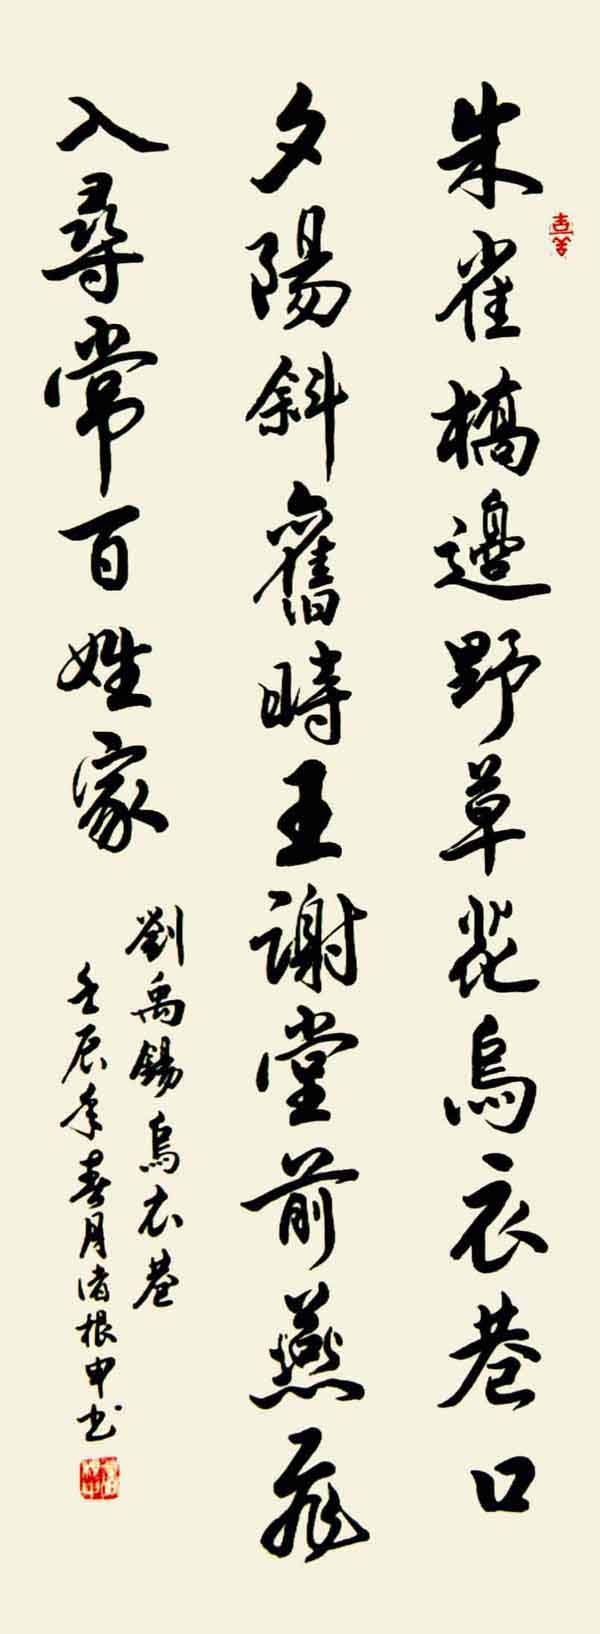 朱雀橋邊野草花烏衣巷口
夕陽斜舊時王謝堂前燕飛
入尋常百姓家
劉禹錫烏衣巷
壬辰年春月褚根申书